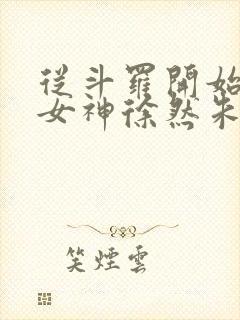 從斗羅開始
女神徐然朱
笑煙雲